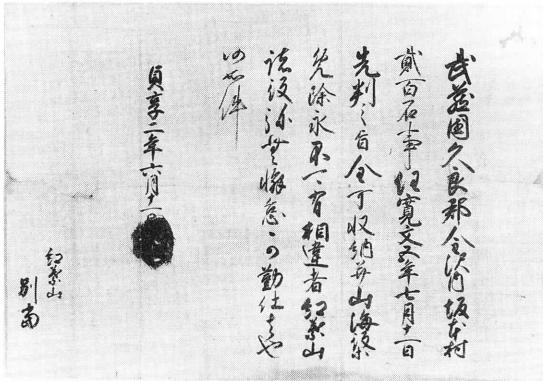 武蔵国久良郡金沢内坂本村
貳百石事任寛文五年七月十一日
先判之旨全可収納并山海
免除永不可有相違者紅葉山
諸役弥無懈怠可勤仕者也
仍如件
貞享二年六月十一日
紅葉山
別當